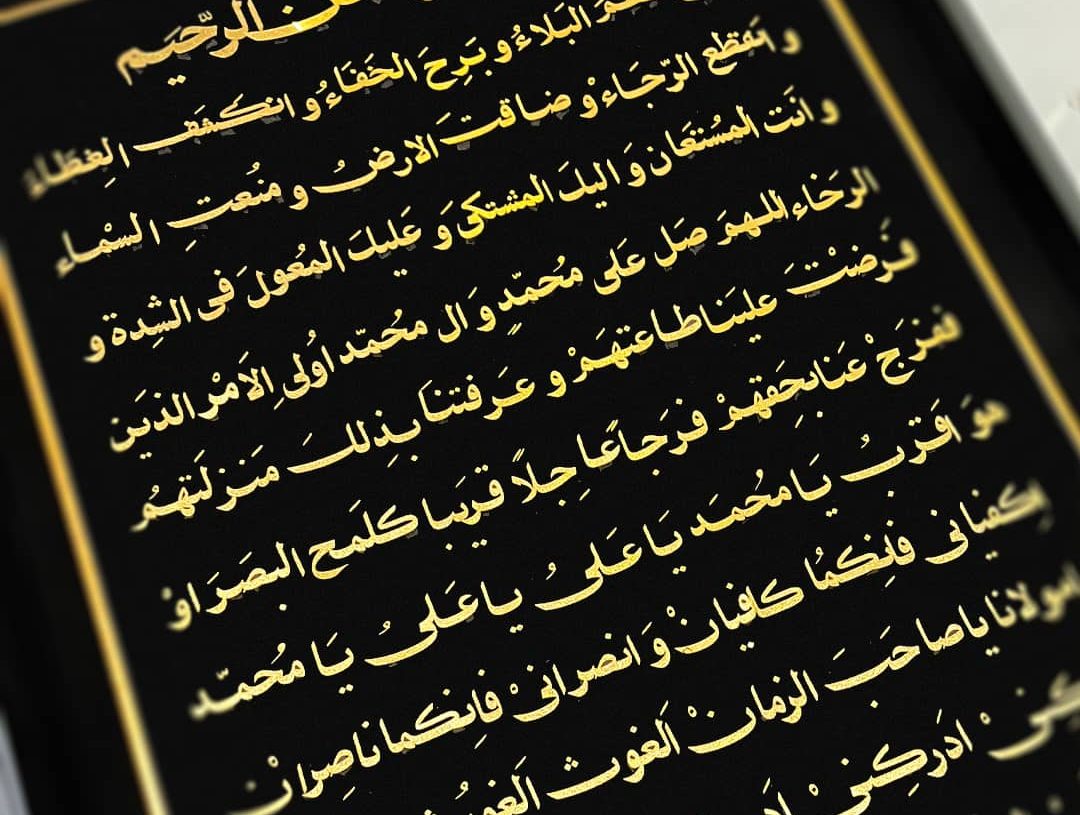 الرَّحيَم
البَلاءُ و بَرِحَ الخَفَاءُ و انكَشَفَ الِغطَاءُ
و انَقطع الرّجَاء وْ ضاقت الارضُ و مُنعتِ السّماء
و انَت المُستعَان وَ اليكَ المشتكى وَ عَليكَ المعُول فى الشِدة و
الرخَاء اللهمَ صَل عَلى مُحمّدٍ وَ ال محُمّد اوُلى اِلاَمْر الذيَن
فَرضْتَ علينَا طاعتهَمْ و عَرفتنا بذِلكَ مَنزلَتهُم
ففرَجْ عَنا بحِقهمْ فرَجا عًاجِلاً قرَيبا كلمَح البصَر اوْ
هوَ اقَربُ يَا محُمَد يَا عَلىُ يا عَلىُ يَا مُحمّد
اِكفيانى فاِنكمُا كافيانْ وَ انصرانىْ فاِنكما ناصِرانْ
يامولانا يا صاحَبَ الزمانْ اَلغوث اَلغوث
ادَركِنىْ